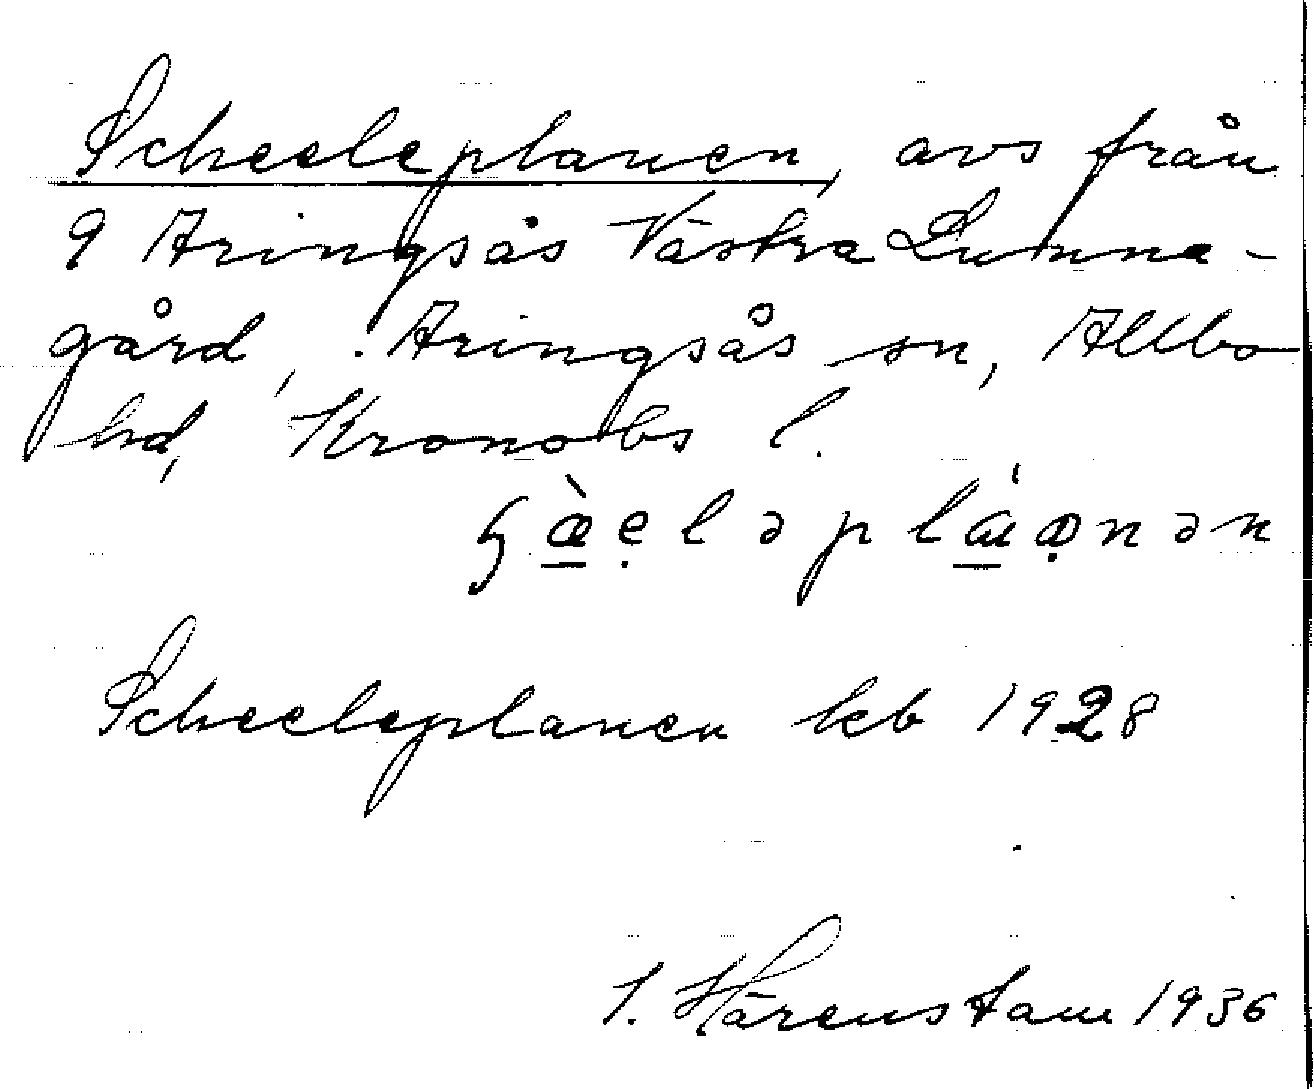 Scheeleplanen, avs från
9 Aringsås Västra Lunna-
gård, Aringsås sn, Allbo
hd, Kronobs l.
Scheeleplanen kb 1928
1. Härenstam 1936